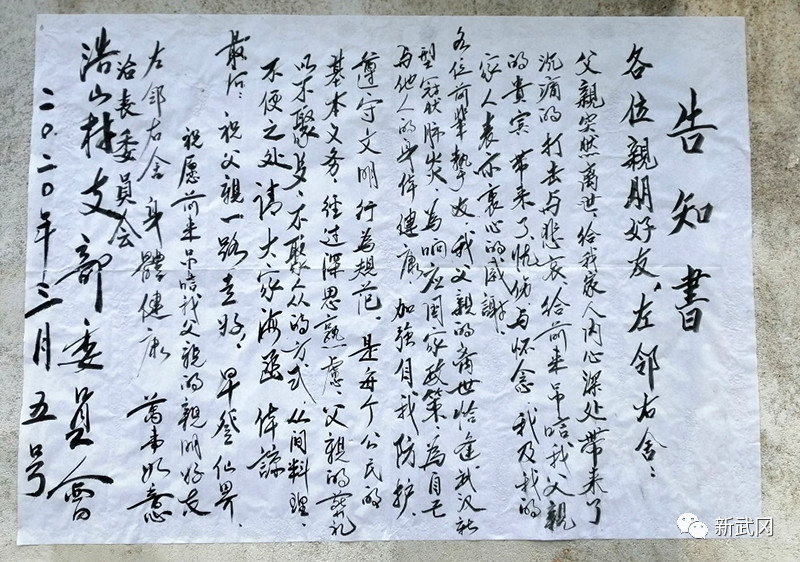 告知書
各位親朋好友、左邻右舍：
父親突然离世、给我家人内心深处带来了
沉痛的打击与悲哀、给前来吊唁我父親
的貴宾带来了忧伤与怀念 我及我的
家人表示衷心的感謝。
各位前辈挚友 我父親的离世恰逢武汉新
型冠状肺炎、为响应国家政策、为自己
与他人的身体健康、加強自我防护、
遵守文明行为規范、是每个公民的
基本义务、经过深思熟慮、父親的葬礼
以不聚多、不聚人众的方式、从间料理、
不便之处请大家海函 体諒
最后：祝父親一路走好，早登仙界、
祝愿前来吊唁我父親的親朋好友
左邻右舍身體健康 萬事如意
治丧委員会
浩山村支部委員會
二〇二〇年三月五号
新武网